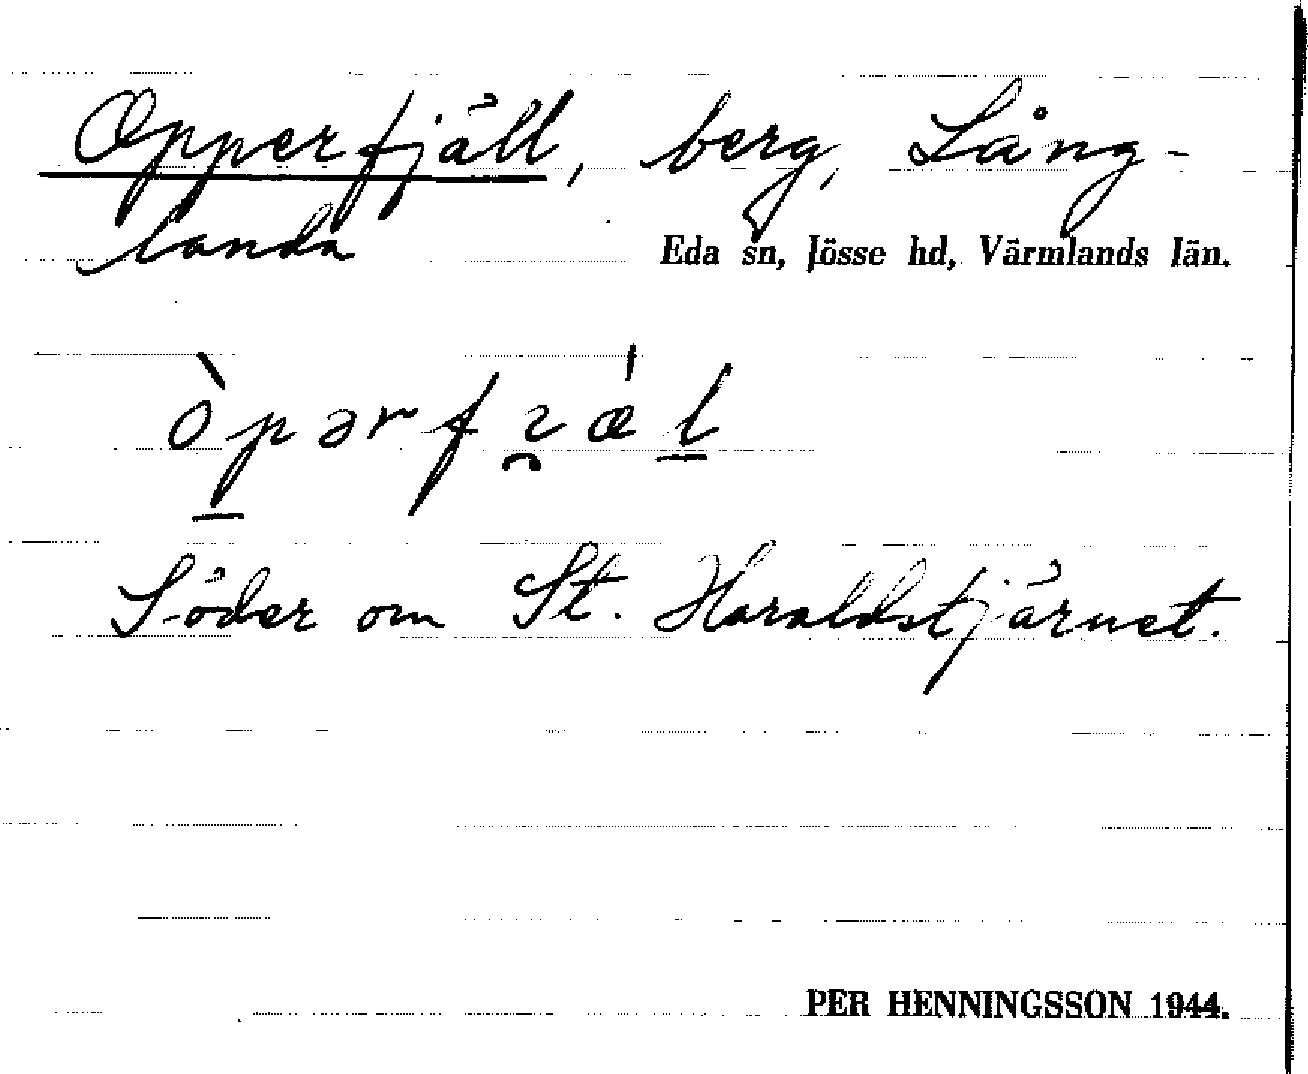 Opperfjäll, berg, Lång-
landa
Eda sn, Jösse hd, Värmlands län.
òpərfɿ̯æ̍l
Söder om St. Haraldstjärnet.
PER HENNINGSSON 1944.